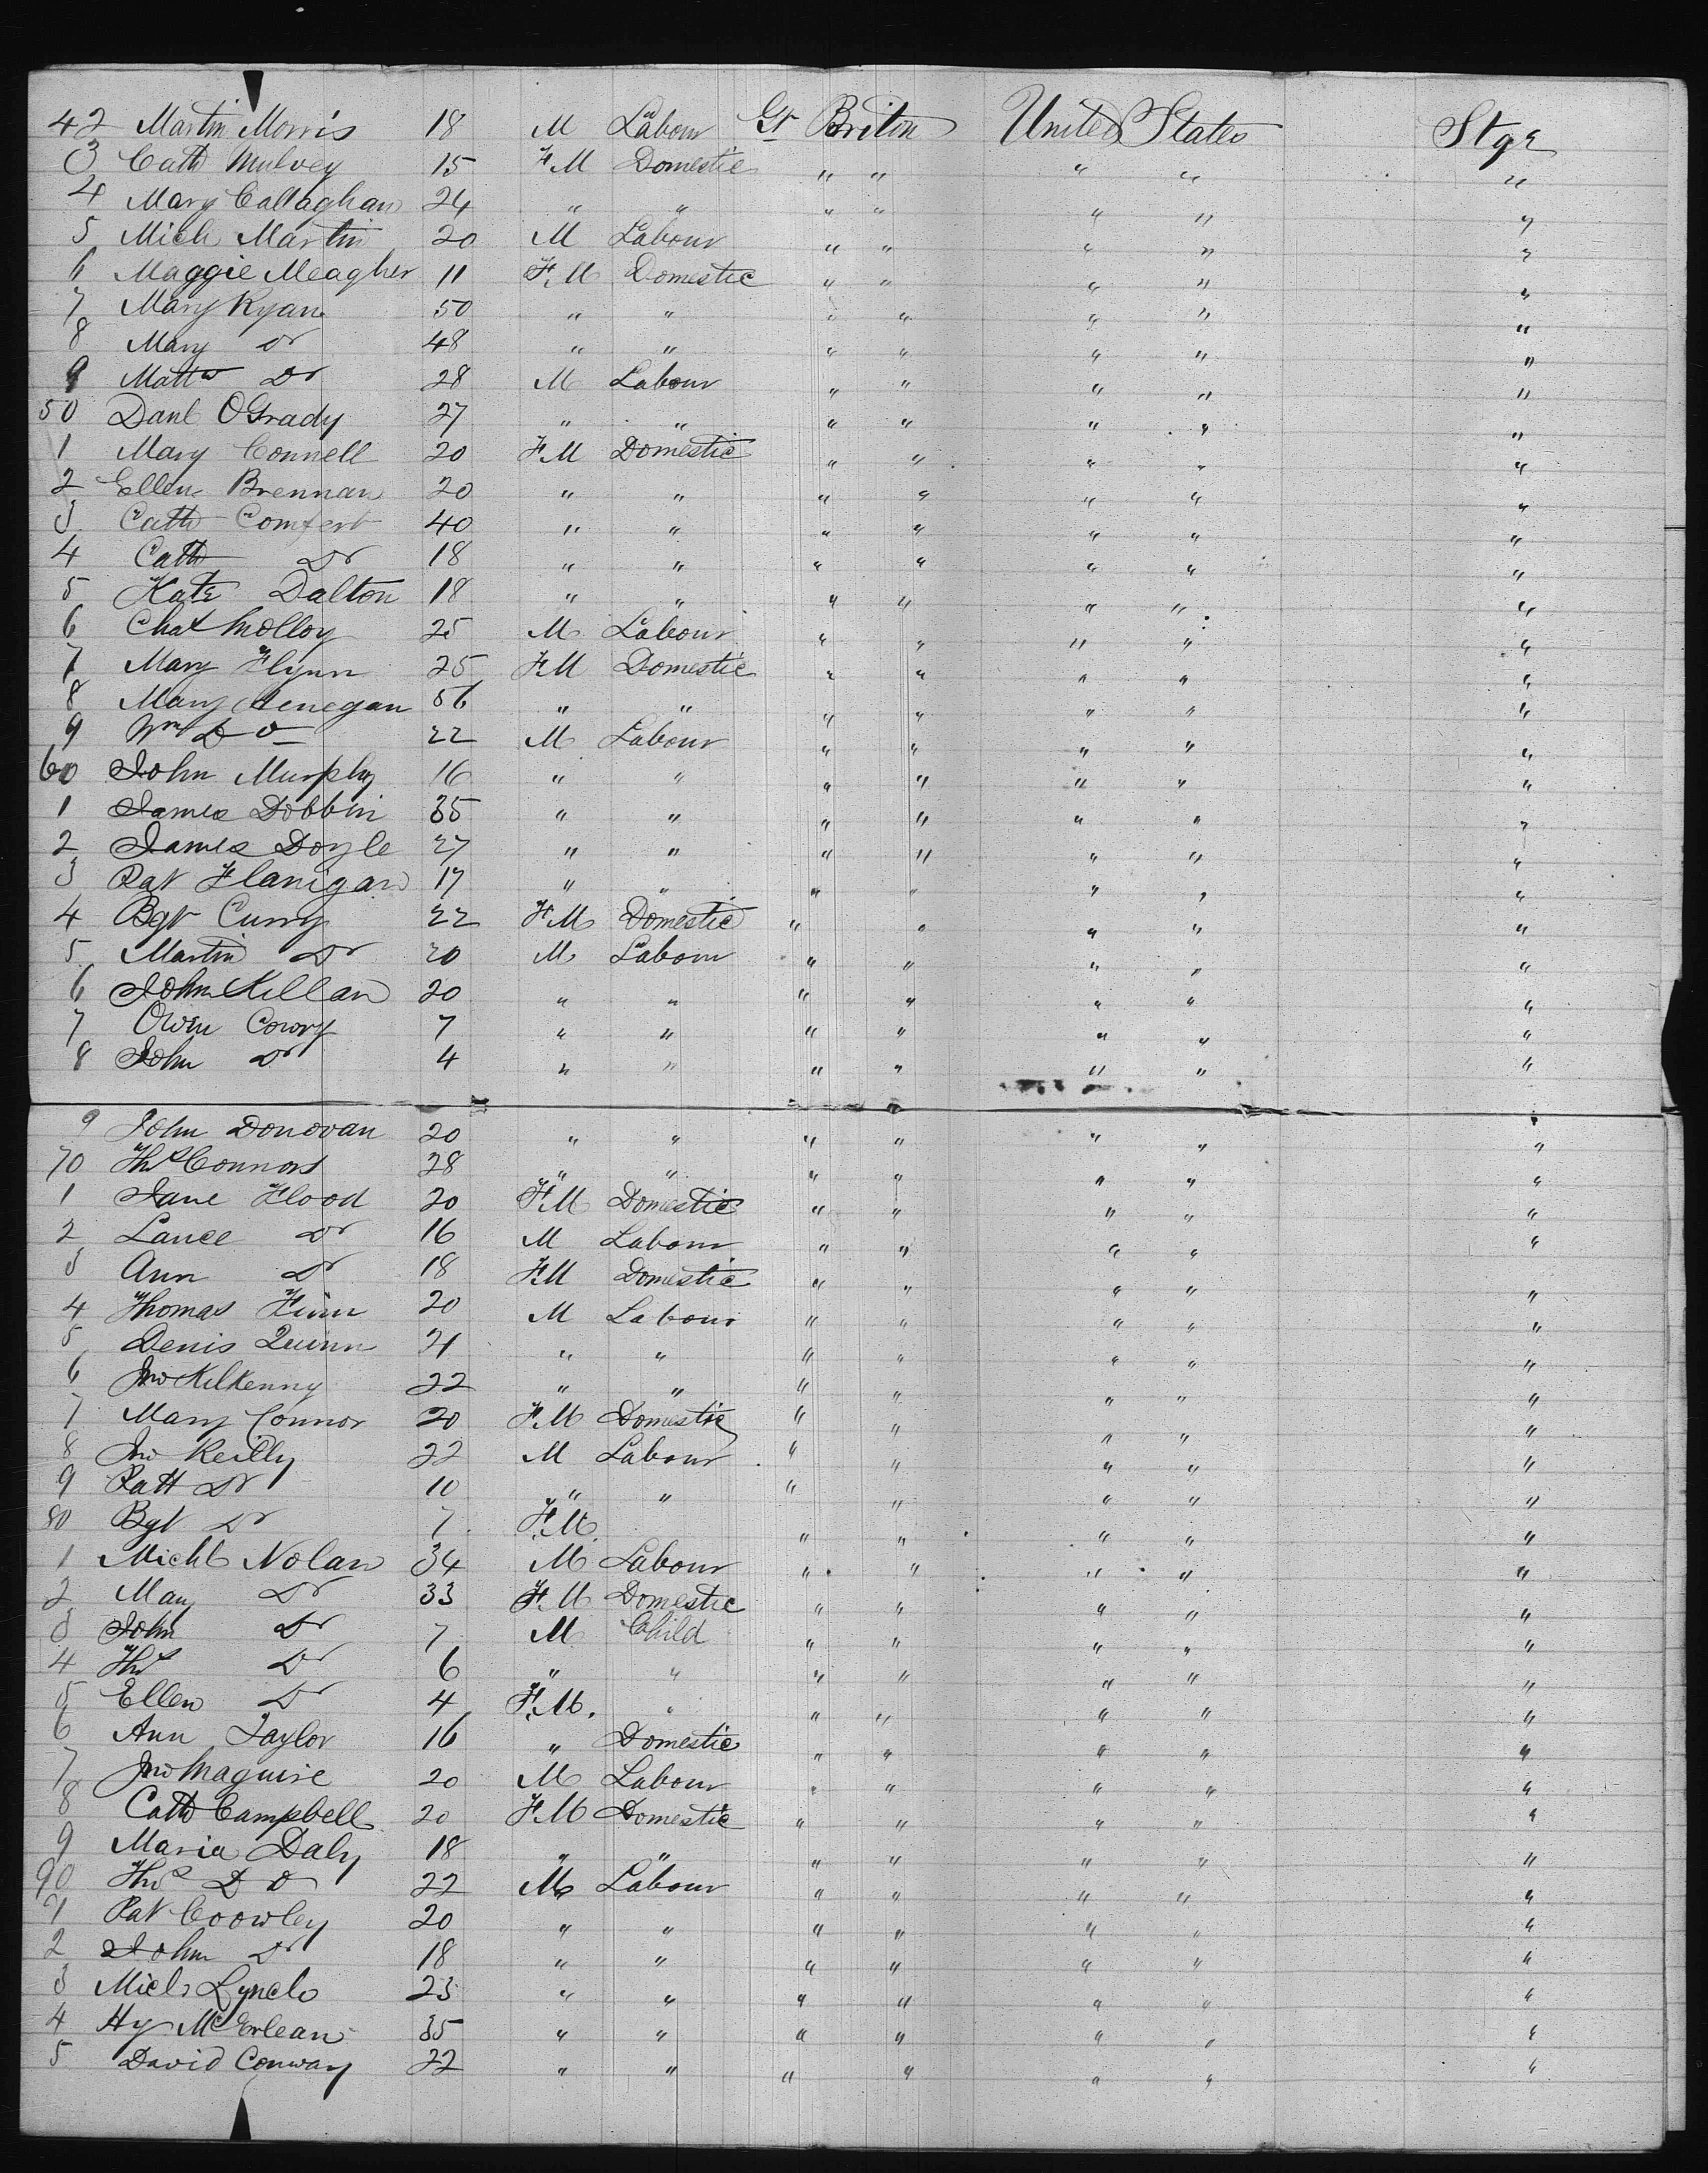 42 Martin Morris 18 M Labour Gt Briton United States Stge
3 Cath Mulvey 15 FM Domestic " " " " "
4 Mary Callaghan 24 " " " " " " "
5 Mich Martin 20 M Labour " " " " "
6 Maggie Meagher 11 FM Domestic " " " " "
7 Mary Ryan 50 " " " " " " "
8 Mary Do 48 " " " " " " "
9 Mattw Do 28 M Labour " " " " "
50 Danl OGrady 27 " " " " " " "
1 Mary Connell 20 FM Domestic " " " " "
2 Ellen Brennan 20 " " " " " " "
3 Cath Comfert 40 " " " " " " "
4 Cath Do 18 " " " " " " "
5 Kate Dalton 18 " " " " " " "
6 Chat Molloy 25 M Labour " " " " "
7 Mary Flynn 25 FM Domestic " " " " "
8 Mary Henegan 56 " " " " " " "
9 Wm Do 22 M Labour " " " " "
60 John Murphy 16 " " " " " " "
1 James Dobbin 35 " " " " " " "
2 James Doyle 27 " " " " " " "
3 Pat Flanigan 17 " " " " " " "
4 Bgt Curry 22 FM Domestic " " " " "
5 Martin Do 20 M Labour " " " " "
6 John Killan 20 " " " " " " "
7 Owen Cowry 7 " " " " " " "
8 John Do 4 " " " " " " "
9 John Donovan 20 " " " " " " "
70 Ths Connors 28 " " " " " " "
1 Jane Flood 20 FM Domestic " " " " "
2 Lance Do 16 M Labour " " " " "
3 Ann Do 18 FM Domestic " " " " "
4 Thomas Finn 20 M Labour " " " " "
5 Denis Quinn 21 " " " " " " "
6 Jno Kilkenny 22 " " " " " " "
7 Mary Connor 20 FM Domestic " " " " "
8 Jno Reilly 22 M Labour " " " " "
9 Patt Do 10 " " " " " " "
80 Bgt Do 7 F.M. " " " " "
1 Michl Nolan 34 M Labour " " " " "
2 Mary Do 33 FM Domestic " " " " "
3 John Do 7 M Child " " " " "
4 Ths Do 6 " " " " " " "
5 Ellen Do 4 F.M. " " " " " "
6 Ann Taylor 16 " Domestic " " " " "
7 Jno Maguire 20 M Labour " " " " "
8 Cath Campbell 20 FM Domestic " " " " "
9 Maria Daly 18 " " " " " " "
90 Ths Do 22 M Labour " " " " "
1 Pat Coowley 20 " " " " " " "
2 John Do 18 " " " " " " "
3 Mich Lynch 23 " " " " " " "
4 Hy McErlean 35 " " " " " " "
5 David Conway 22 " " " " " " "